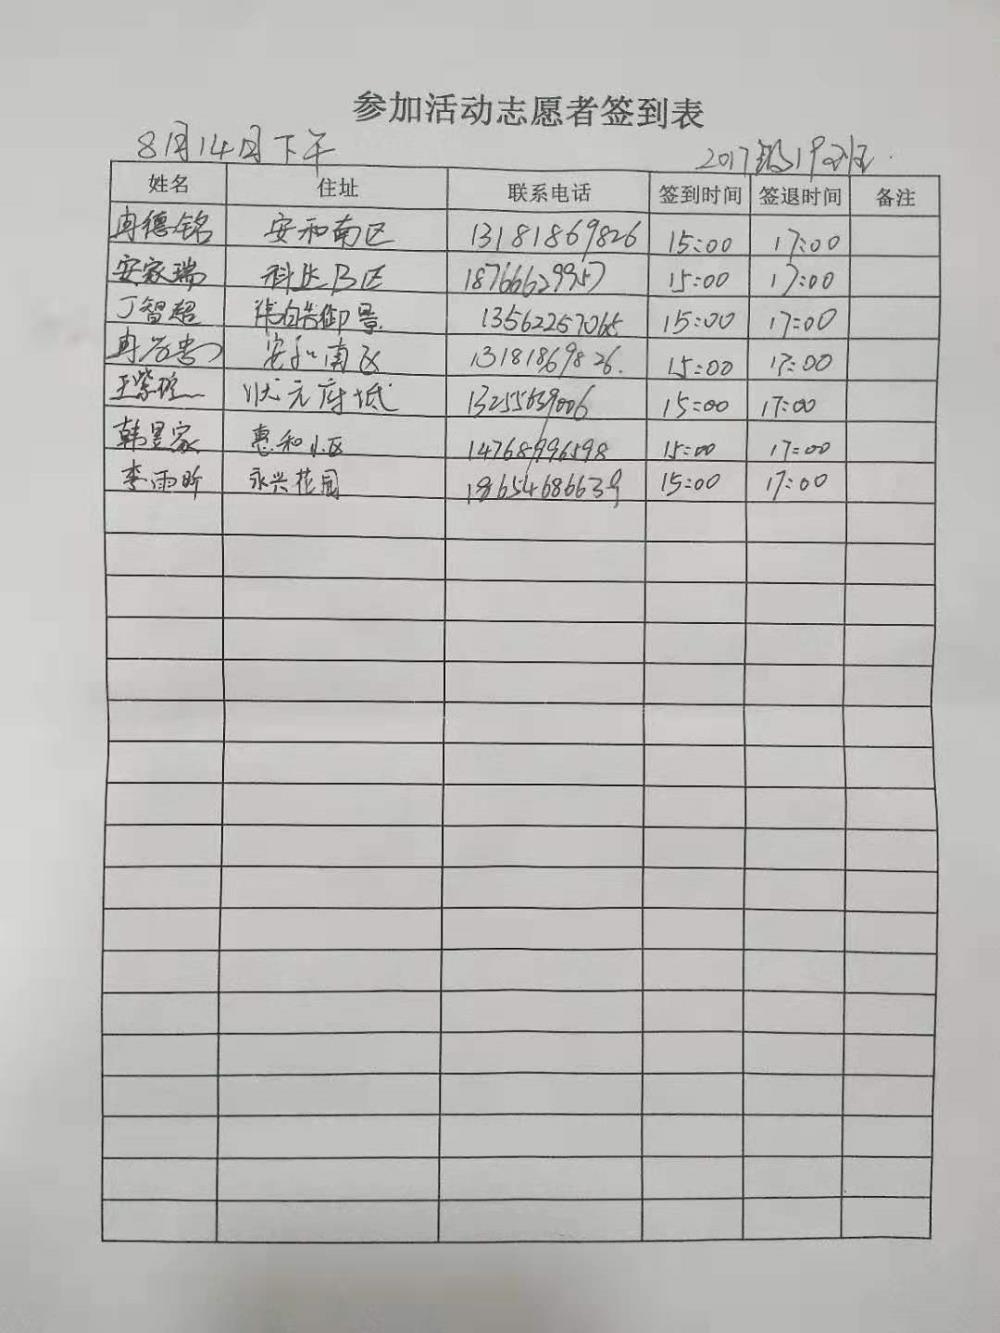 参加活动志愿者签到表
8月14日下午 2017级19班.
姓名 住址 联系电话 签到时间 签退时间 备注
冉德铭 安和南区 13181869826 15:00 17:00
安家瑞 科达B区 18766629957 15:00 17:00
丁智超 御景 13562257065 15:00 17:00
冉 安和南区 13181869826. 15:00 17:00
王紫 状元府坻 13255639006 15:00 17:00
韩昱家 惠和小区 14768996598 15:00 17:00
李雨昕 永兴花园 18654686639 15:00 17:00